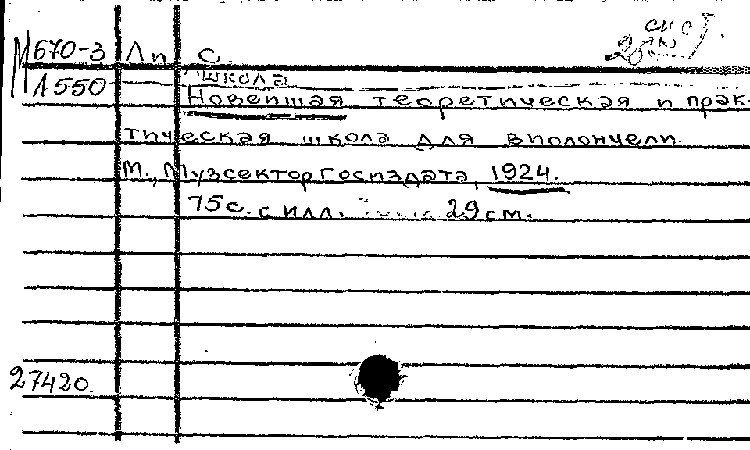 М 670-3 Лп С.
Л550 Школа
Новейшая теоретическая и прак-
тическая школа для виолончели
М., Музсектор Госиздата, 1924.
75 с. с илл. 29 см.
27420